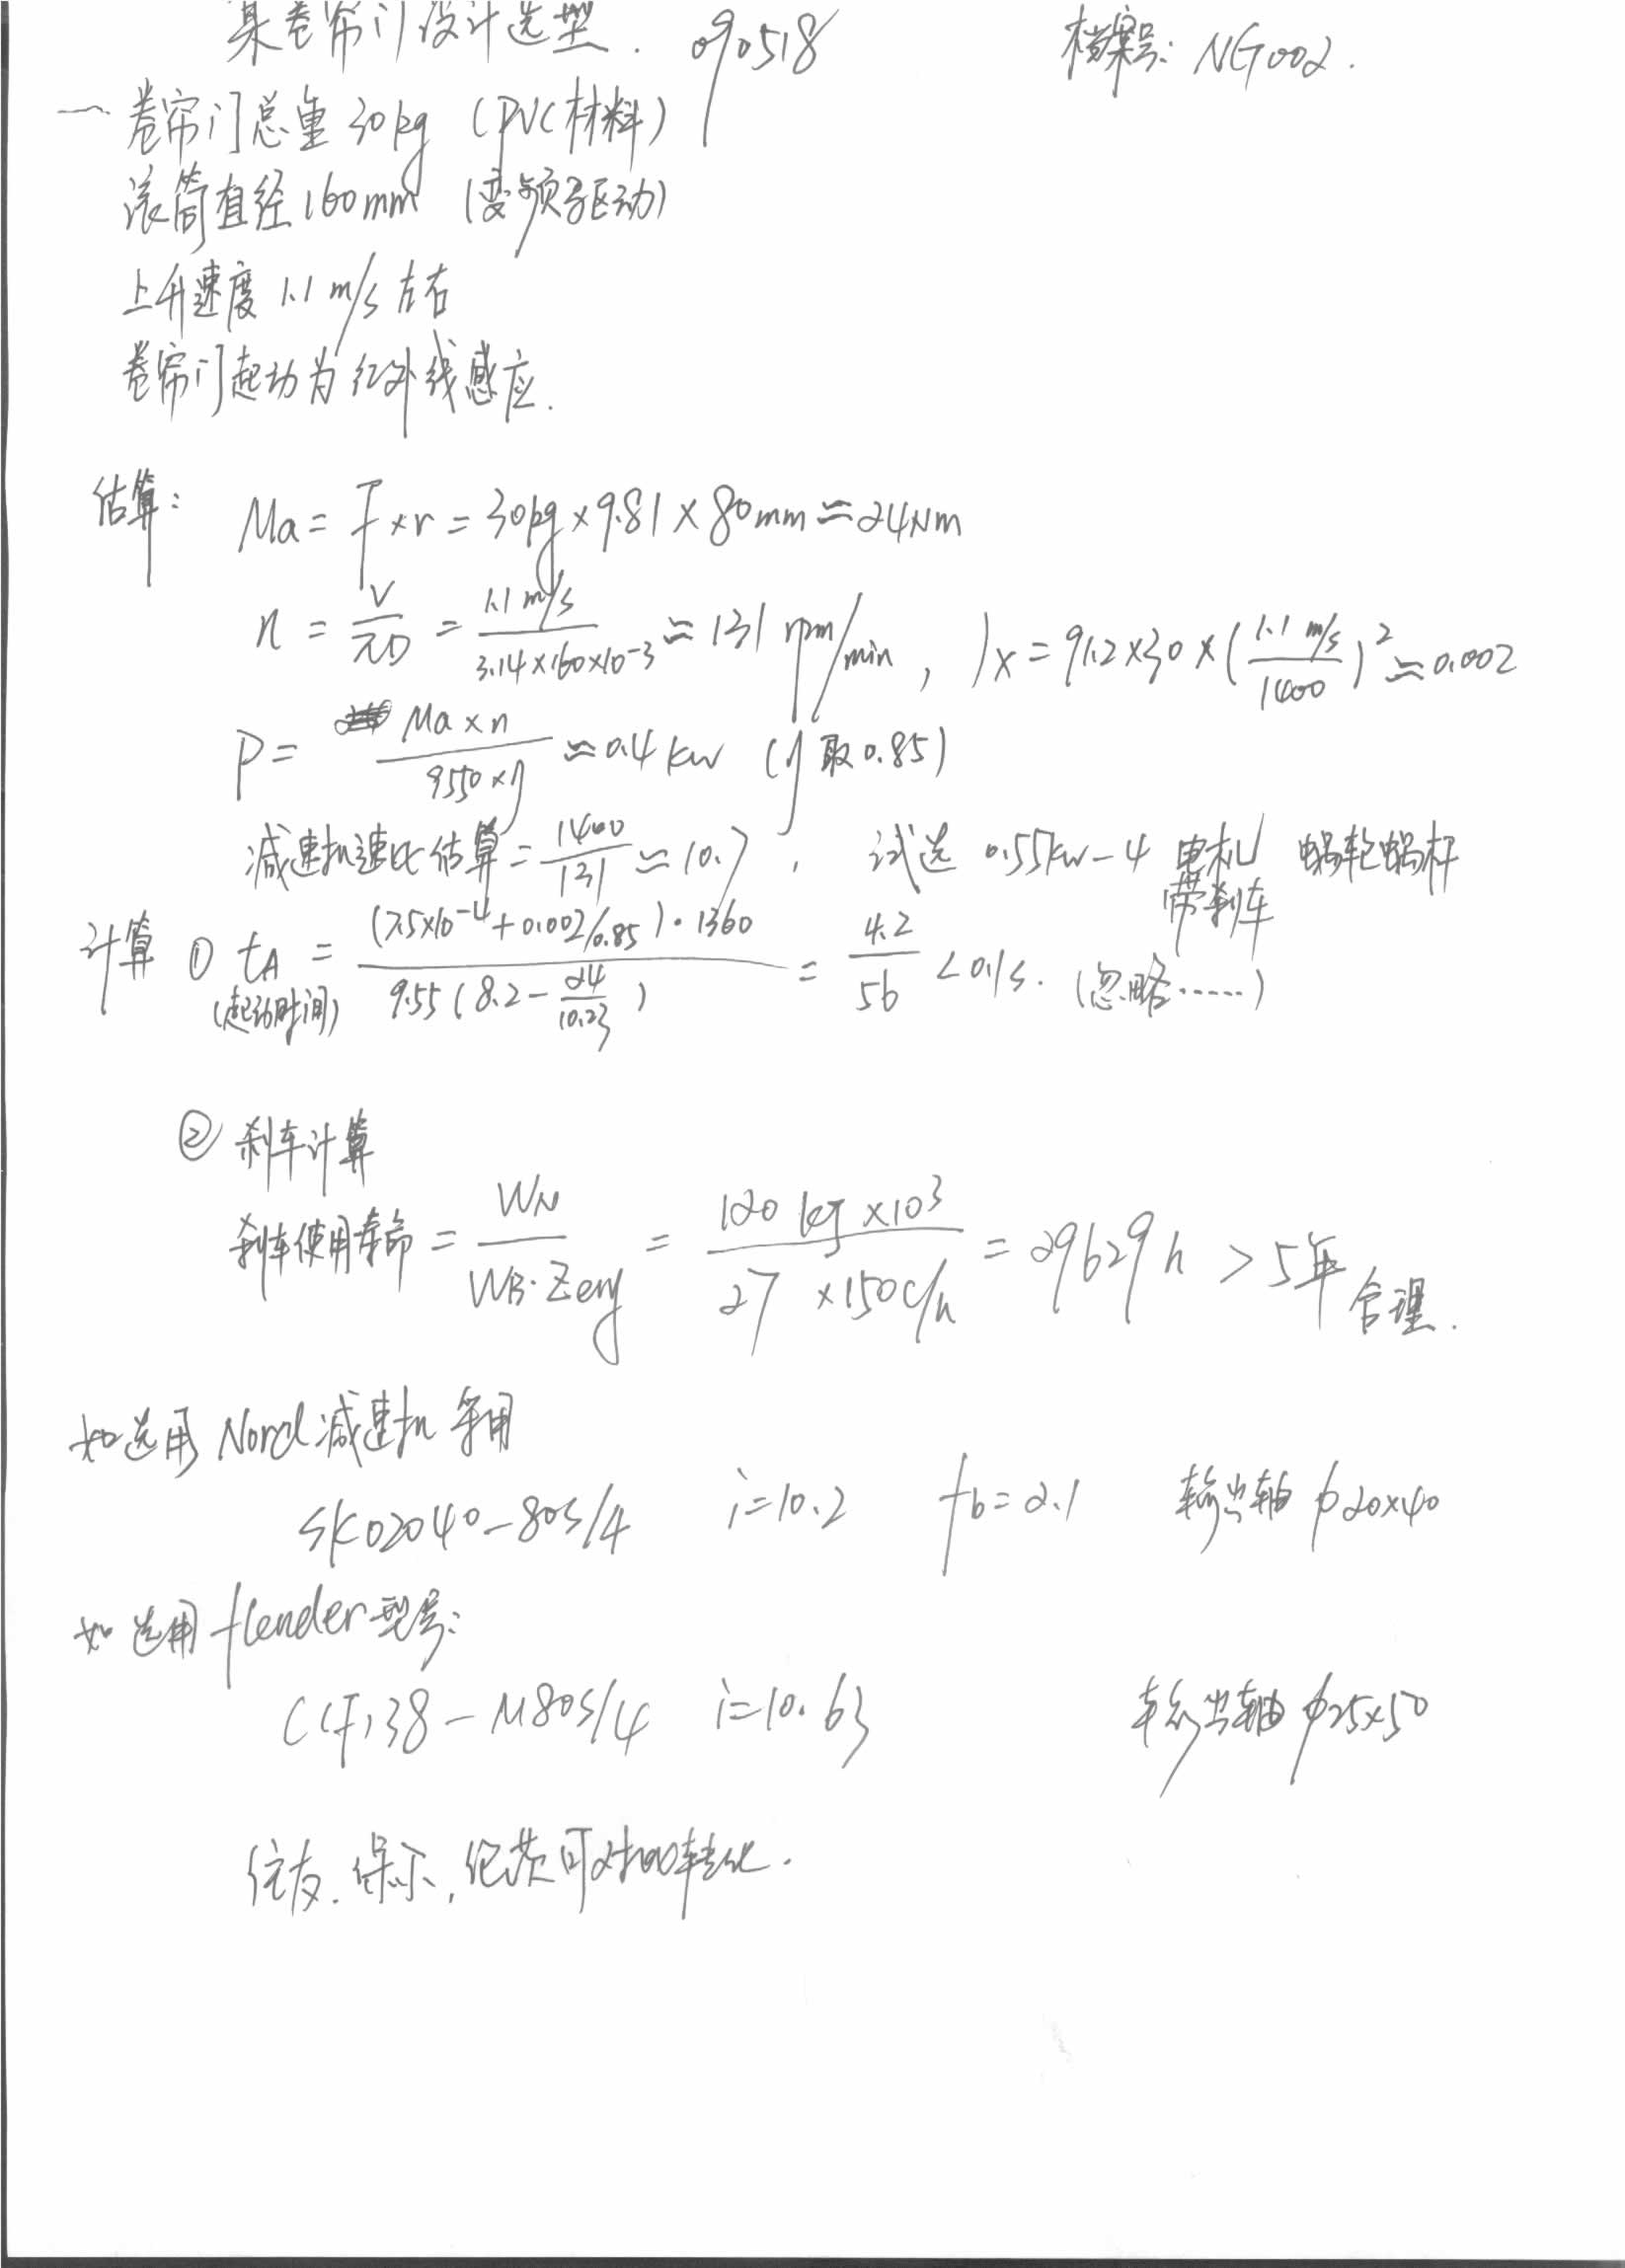 某卷帘门设计选型. 090518 档案号: NG002.
一 卷帘门总重 30kg (PVC材料)
滚筒直径160mm (变频器驱动)
上升速度 1.1 m/s 左右
卷帘门起动为红外线感应.
估算: Ma = F×r = 30kg×9.81×80mm ≈ 24Nm
n = V/πD = 1.1 m/s / 3.14×160×10⁻³ ≈ 131 rpm/min, Jx = 91.2×30×(1.1 m/s / 1400)² ≈ 0.002
P = Ma×n / 9550×η ≈ 0.4 kw (η取0.85)
减速机速比估算 = 1400/131 ≈ 10.7, 试选 0.55kw-4 电机 蜗轮蜗杆
带刹车
计算 ① tA = (7.5×10⁻⁴+0.002/0.85)·1360 / 9.55(8.2-24/10.23) = 4.2/56 <0.1s. (忽略……)
(起动时间)
② 刹车计算
刹车使用寿命 = WN / WB·Zeng = 120 kJ×10³ / 27×150c/h = 29629 h > 5年 合理.
如选用 Nord 减速机 等用
SK02040-80S/4 i=10.2 fb=2.1 输出轴 φ20×40
如选用 flender 型号:
CCF,38-M80S/4 i=10.63 输出轴 φ25×50
住友. 保尔, 伦茨可对应转化.